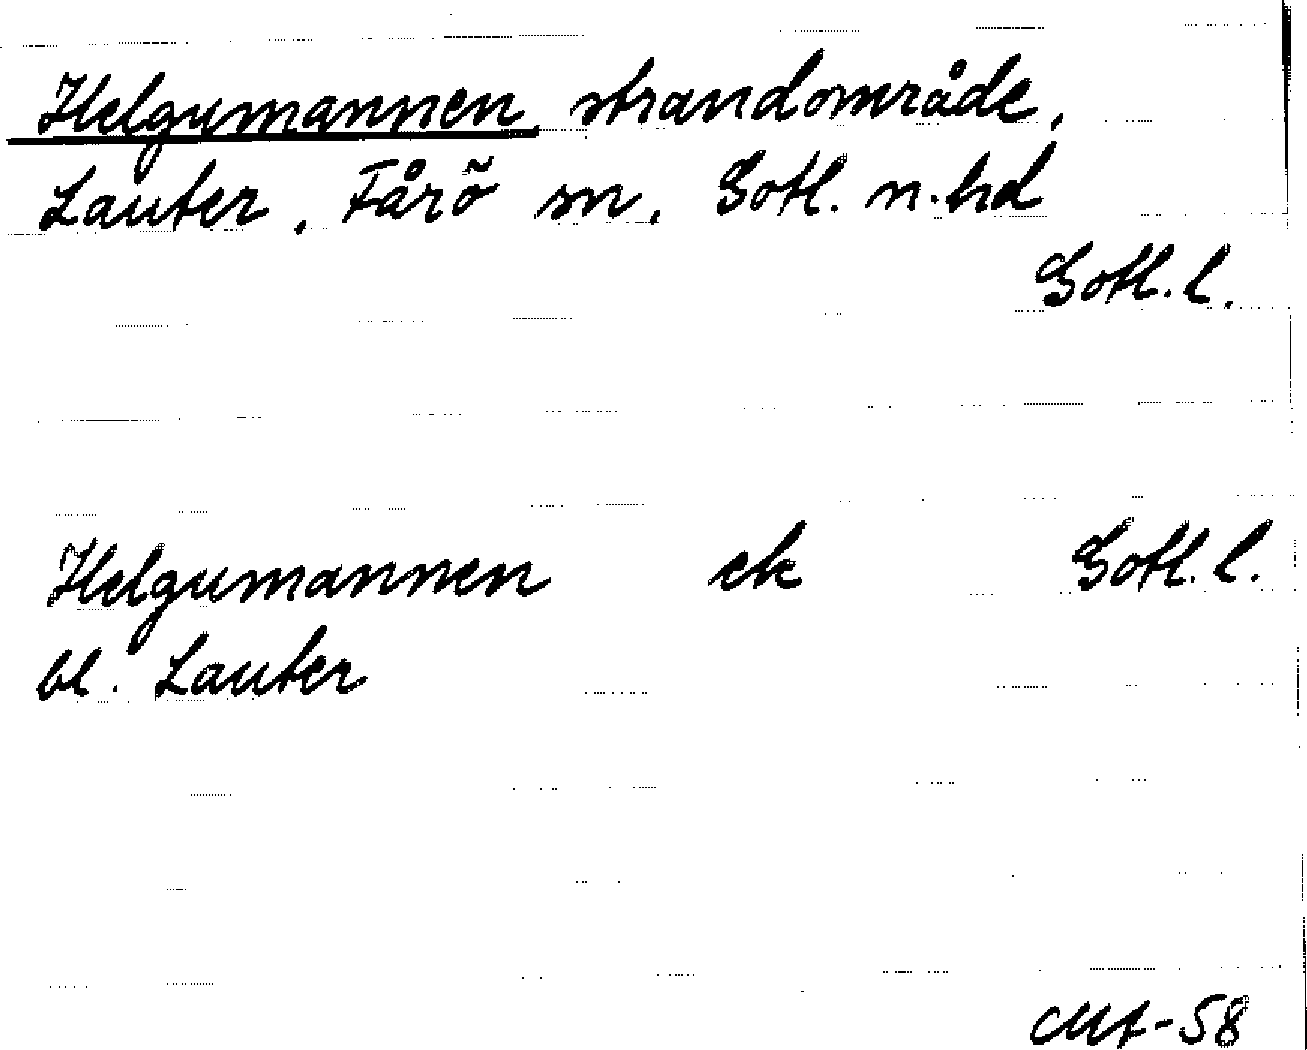 Helgumannen strandområde,
Lauter, Fårö sn, Gotl. n. hd
Gotl. l.
Helgumannen ek Gotl. l.
bl. Lauter
-58